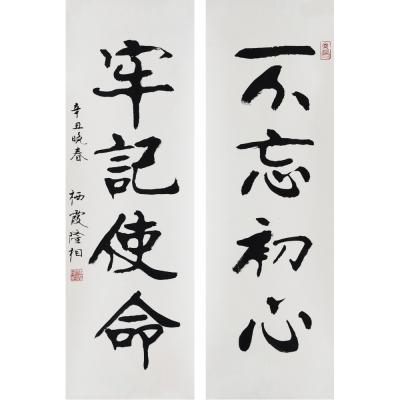 不忘初心
牢記使命
辛丑晚春
栖霞隆相